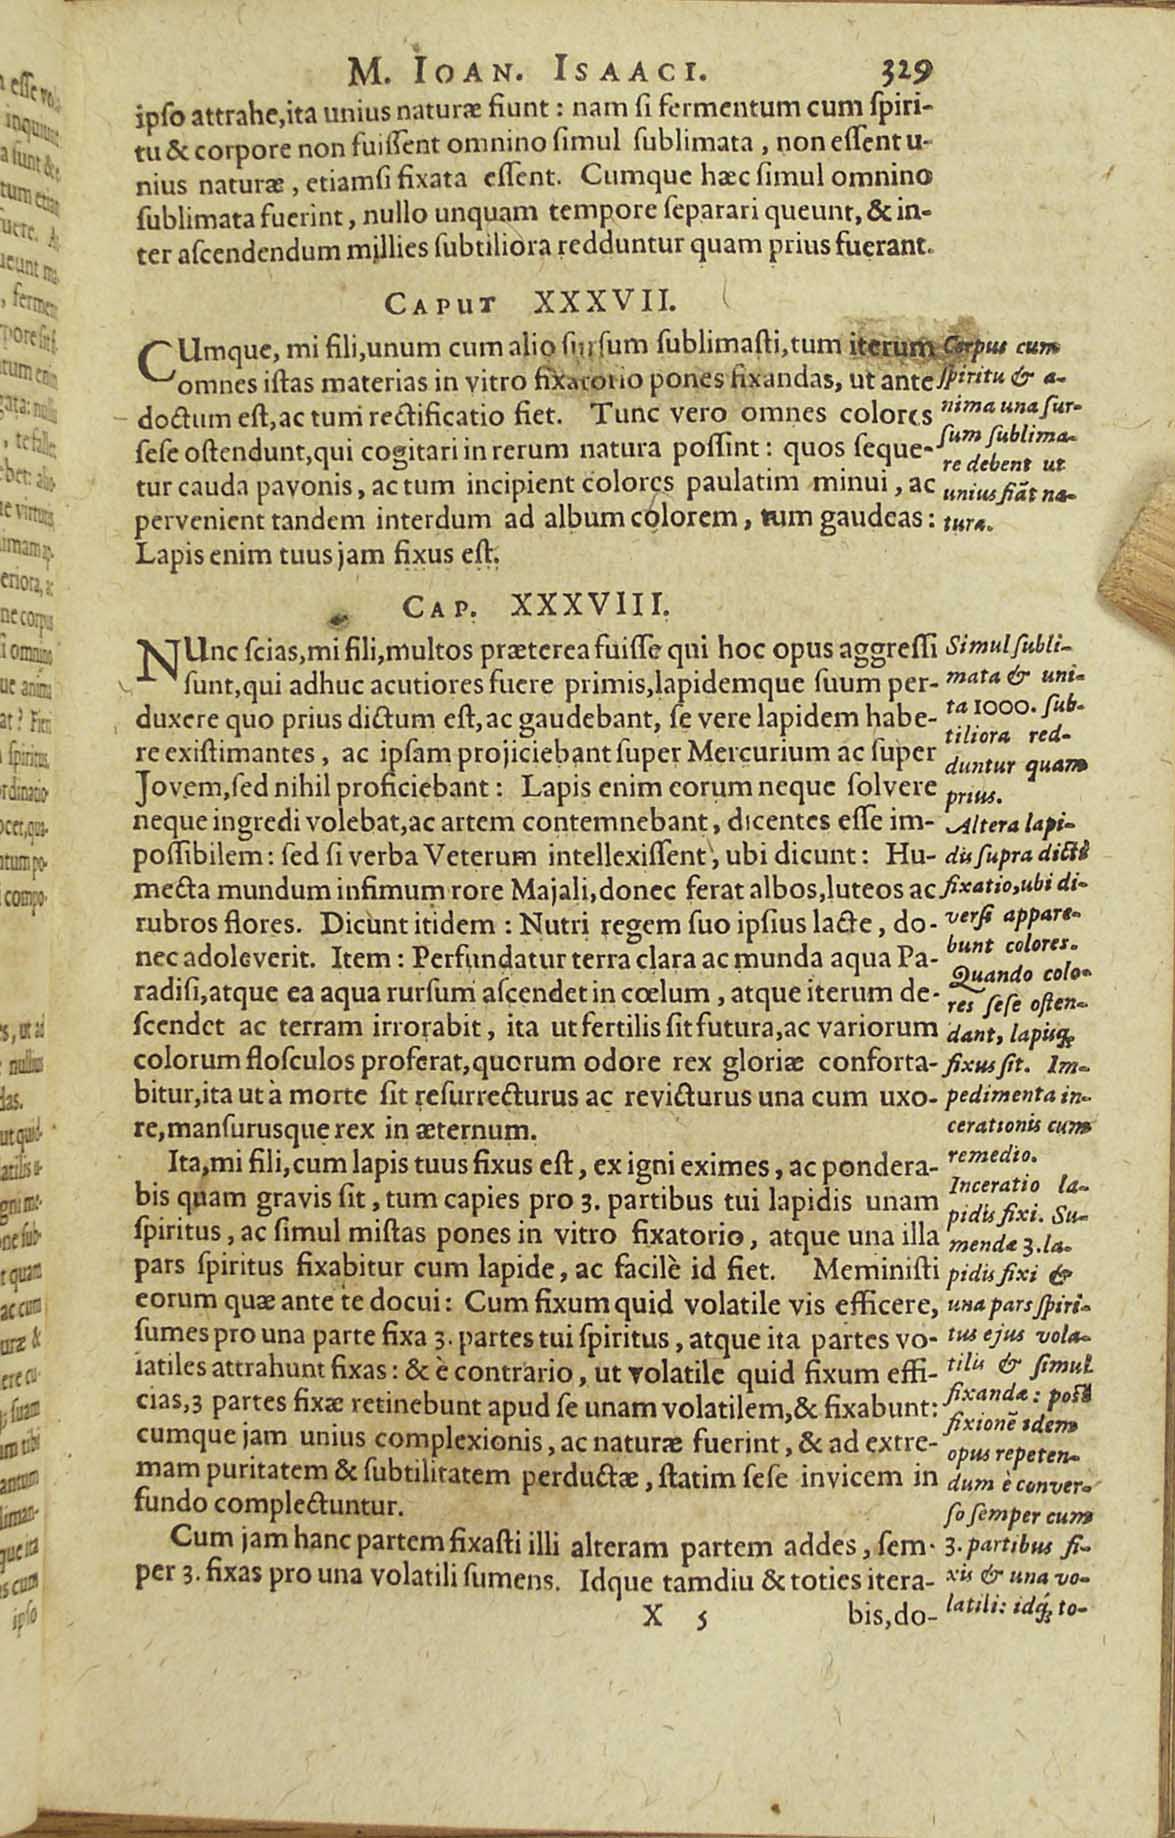 M. IOAN. ISAACI. 329
ipſo attrahe,ita unius naturæ fiunt: nam ſi fermentum cum ſpiri-
tu & corpore non fuiſſent omnino ſimul ſublimata, non eſſent u-
nius naturæ, etiamſi fixata eſſent. Cumque hæc ſimul omnino
ſublimata fuerint, nullo unquam tempore ſeparari queunt, & in-
ter aſcendendum millies ſubtiliora redduntur quam prius fuerant.
CAPUT XXXVII.
CUmque, mi fili,unum cum alio ſurſum ſublimaſti,tum iterum
omnes iſtas materias in vitro fixatorio pones fixandas, ut ante
doctum eſt, ac tum rectificatio fiet. Tunc vero omnes colores
ſeſe oſtendunt,qui cogitari in rerum natura poſſint: quos ſeque-
tur cauda pavonis, ac tum incipient colores paulatim minui, ac
pervenient tandem interdum ad album colorem, tum gaudeas:
Lapis enim tuus jam fixus eſt.
Corpus cum
ſpiritu & a-
nima una ſur-
ſum ſublima-
re debent ut
unius fiãt na-
tura.
CAP. XXXVIII.
NUnc ſcias, mi fili, multos præterea fuiſſe qui hoc opus aggreſſi
ſunt,qui adhuc acutiores fuere primis,lapidemque ſuum per-
duxere quo prius dictum eſt, ac gaudebant, ſe vere lapidem habe-
re exiſtimantes, ac ipſam projiciebant ſuper Mercurium ac ſuper
Jovem, ſed nihil proficiebant: Lapis enim eorum neque ſolvere
neque ingredi volebat,ac artem contemnebant, dicentes eſſe im-
poſſibilem: ſed ſi verba Veterum intellexiſſent, ubi dicunt: Hu-
mecta mundum infimum rore Majali, donec ferat albos, luteos ac
rubros flores. Dicunt itidem: Nutri regem ſuo ipſius lacte, do-
nec adoleverit. Item: Perfundatur terra clara ac munda aqua Pa-
radiſi,atque ea aqua rurſum aſcendet in cœlum, atque iterum de-
ſcendet ac terram irrorabit, ita ut fertilis ſit futura,ac variorum
colorum floſculos proferat,quorum odore rex gloriæ conforta-
bitur,ita ut à morte ſit reſurrecturus ac revicturus una cum uxo-
re,manſurusque rex in æternum.
Ita,mi fili, cum lapis tuus fixus eſt, ex igni eximes, ac pondera-
bis quam gravis ſit, tum capies pro 3. partibus tui lapidis unam
ſpiritus, ac ſimul miſtas pones in vitro fixatorio, atque una illa
pars ſpiritus fixabitur cum lapide, ac facilè id fiet. Meminiſti
eorum quæ ante te docui: Cum fixum quid volatile vis efficere,
ſumes pro una parte fixa 3. partes tui ſpiritus, atque ita partes vo-
latiles attrahunt fixas: & è contrario, ut volatile quid fixum effi-
cias, 3 partes fixæ retinebunt apud ſe unam volatilem,& fixabunt:
cumque jam unius complexionis, ac naturæ fuerint, & ad extre-
mam puritatem & ſubtilitatem perductæ, ſtatim ſeſe invicem in
fundo complectuntur.
Cum jam hanc partem fixaſti illi alteram partem addes, ſem-
per 3. fixas pro una volatili ſumens. Idque tamdiu & toties itera-
Simul ſubli-
mata & uni-
ta 1000. ſub-
tiliora red-
duntur quam
prius.
Altera lapi-
dis ſupra dicti
fixatio,ubi di-
verſi appare-
bunt colores.
Quando colo-
res ſeſe oſten-
dant, lapisq;
fixus ſit. Im-
pedimenta in-
cerationis cum
remedio.
Inceratio la-
pidis fixi. Su-
mendæ 3. la-
pidis fixi &
una pars ſpiri-
tus ejus vola-
tilis & ſimul
fixandæ: poſt
fixionẽ idem
opus repeten-
dum è conver-
ſo ſemper cum
3. partibus fi-
xis & una vo-
latili: idq; to-
X 5 bis,do-